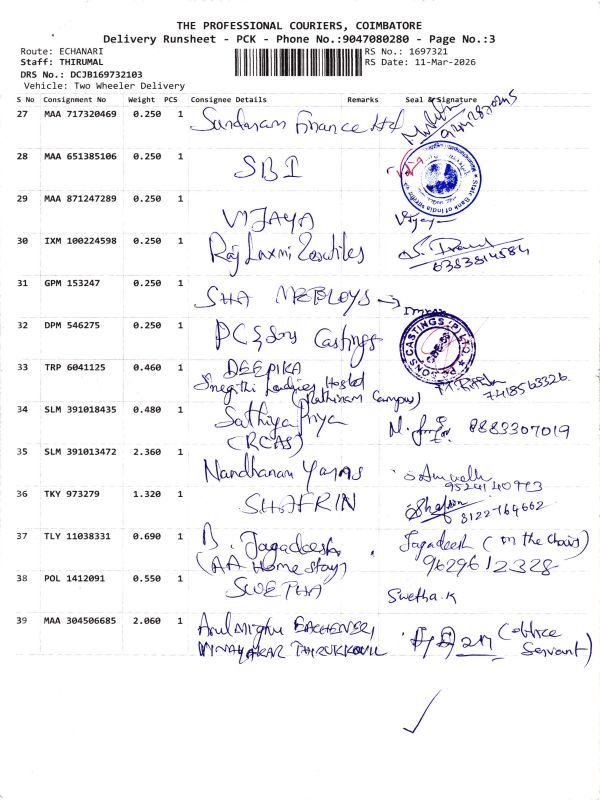 THE PROFESSIONAL COURIERS, COIMBATORE
Delivery Runsheet - PCK - Phone No.:9047080280 - Page No.:3
Route: ECHANARI
RS No.: 1697321
Staff: THIRUMAL
RS Date: 11-Mar-2026
DRS No.: DCJB169732103
Vehicle: Two Wheeler Delivery
S No Consignment No Weight PCS Consignee Details Remarks Seal & Signature
27 MAA 717320469 0.250 1 Sundaram Finance Ltd
28 MAA 651385106 0.250 1 SBI
29 MAA 871247289 0.250 1 VIJAYA Vijaya
30 IXM 100224598 0.250 1 Raj Laxmi Textiles
6383814584
31 GPM 153247 0.250 1 SHA METALOYS
32 DPM 546275 0.250 1 PC & Sons Castings
33 TRP 6041125 0.460 1 DEEPIKA
Snegithi Ladies Hostel
(Rathinam Campus) 7418563326
34 SLM 391018435 0.480 1 Sathiya Priya 8883307019
(RCAS)
35 SLM 391013472 2.360 1 Nandhanam Yarns
36 TKY 973279 1.320 1 SHAFRIN
8122764662
37 TLY 11038331 0.690 1 B. Jagadeesh Jagadeesh (on the Chair)
(AA Home Stay) 9629612328
38 POL 1412091 0.550 1 SWETHA Swetha.K
39 MAA 304506685 2.060 1 Arulmighu EACHENERI (office
VINAYAKAR THIRUKKOVIL Servant)